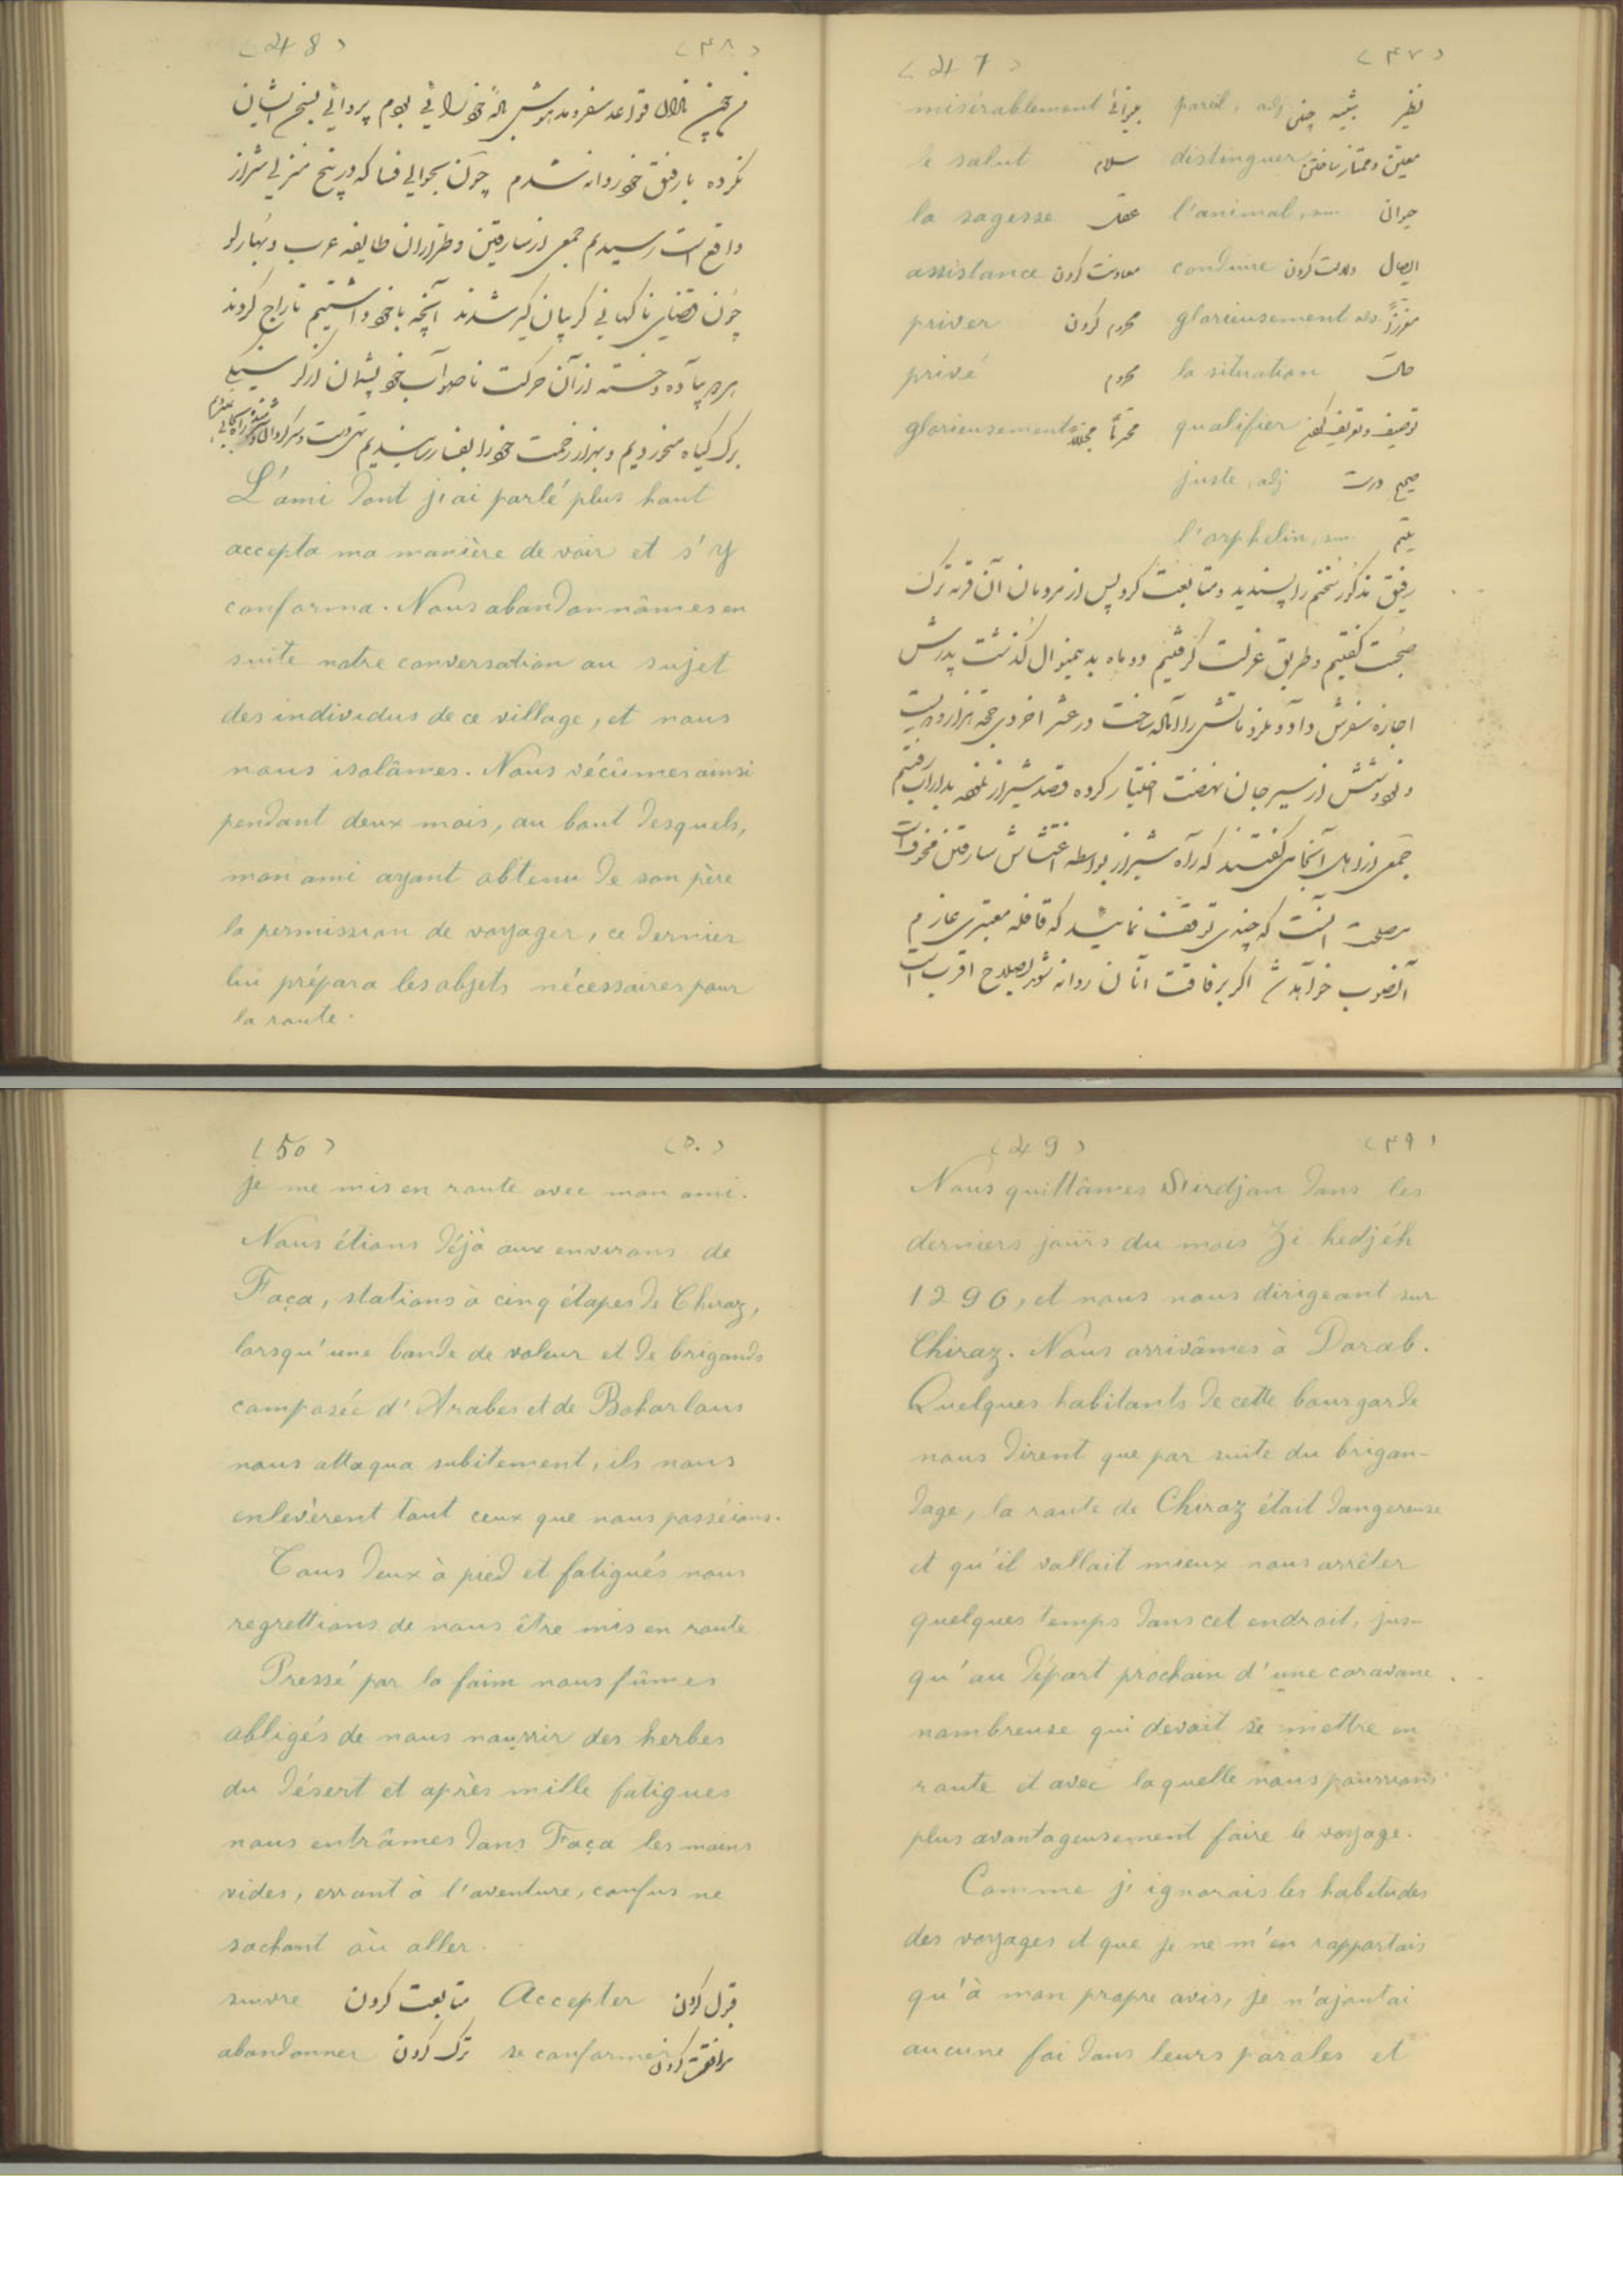 (47) (۴۷)
نظیر شبیه چنین pareil, adj بفقیرانه misérablement
distinguer سلام le salut
حیوان l'animal, sm عقل la sagesse
ایصال دلالت کردن conduire معاونت کردن assistance
معززاً glorieusement adv. محروم کردن priver
حالت la situation محروم privé
qualifier glorieusement
صحیح درست juste, adj
یتیم l'orphelin, sm
رفیق مذکور سخنم را پسندید و متابعت کرد پس از مردمان آن قریه ترک
صحبت گفتیم و طریق عزلت گرفتیم دو ماه بدینمنوال گذشت پدرش
اجازه سفرش داد و ملزوماتش را آماله ساخت در عشر آخر ذی حجه هزار و دویست
و نود و شش از سیرجان نهضت اختیار کرده قصد شیراز نموده بداراب رفتیم
جمعی از اهل آنجا می گفتند که راه شیراز بواسطه اغتشاش سارقین مخوف است
مصلحت آنست که چندی توقف نمائید که قافله معتبری عازم
آنصوب خواهد شد اگر برفاقت آنان روانه شوید بصلاح اقرب است
(48) (۴۸)
قواعد سفر بودم پروائی بسخن ایشان
نکرده با رفیق خود روانه شدم چون بحوالی فسا که در پنج منزلی شیراز
واقع است رسیدیم جمعی از سارقین و طراران طایفه عرب و بهارلو
چون قضای ناگهانی گریبان گیر شدند آنچه با خود داشتیم تاراج کردند
پیاده و خسته از آن حرکت ناصواب خود پشیمان از گرسنگی
برگ گیاه میخوردیم و بهزار زحمت خود را بفسا رسانیدیم تهی دست و سرگردان
L'ami dont j'ai parlé plus haut
accepta ma manière de voir et s'y
conforma. Nous abandonnâmes en
suite notre conversation au sujet
des individus de ce village, et nous
nous isolâmes. Nous vécûmes ainsi
pendant deux mois, au bout desquels,
mon ami ayant obtenu de son père
la permission de voyager, ce dernier
lui prépara les objets nécessaires pour
la route.
(49) (۴۹)
Nous quittâmes Sirdjan dans les
derniers jours du mois Zi hedjéh
1296, et nous nous dirigeant sur
Chiraz. Nous arrivâmes à Darab.
Quelques habitants de cette bourgarde
nous dirent que par suite du brigan-
dage, la route de Chiraz était dangereuse
et qu'il vallait mieux nous arrêter
quelques temps dans cet endroit, jus-
qu'au départ prochain d'une caravane
nombreuse qui devait se mettre en
route et avec laquelle nous pourrions
plus avantageusement faire le voyage.
Comme j'ignorais les habitudes
des voyages et que je ne m'en rapportais
qu'à mon propre avis, je n'ajoutai
aucune foi dans leurs paroles et
(50) (۵۰)
je me mis en route avec mon ami.
Nous étions déjà aux environs de
Faça, stations à cinq étapes de Chiraz,
lorsqu'une bande de voleur et de brigands
composée d'Arabes et de Baharlous
nous attaqua subitement, ils nous
enlevèrent tout ceux que nous posséions.
Tous deux à pied et fatigués nous
regrettions de nous être mis en route
Pressé par la faim nous fûmes
obligés de nous nourrir des herbes
du désert et après mille fatigues
nous entrâmes dans Faça les mains
vides, errant à l'aventure, confus ne
sachant où aller.
قبول کردن Accepter متابعت کردن suivre
موافقت کردن se conformer ترک کردن abandonner